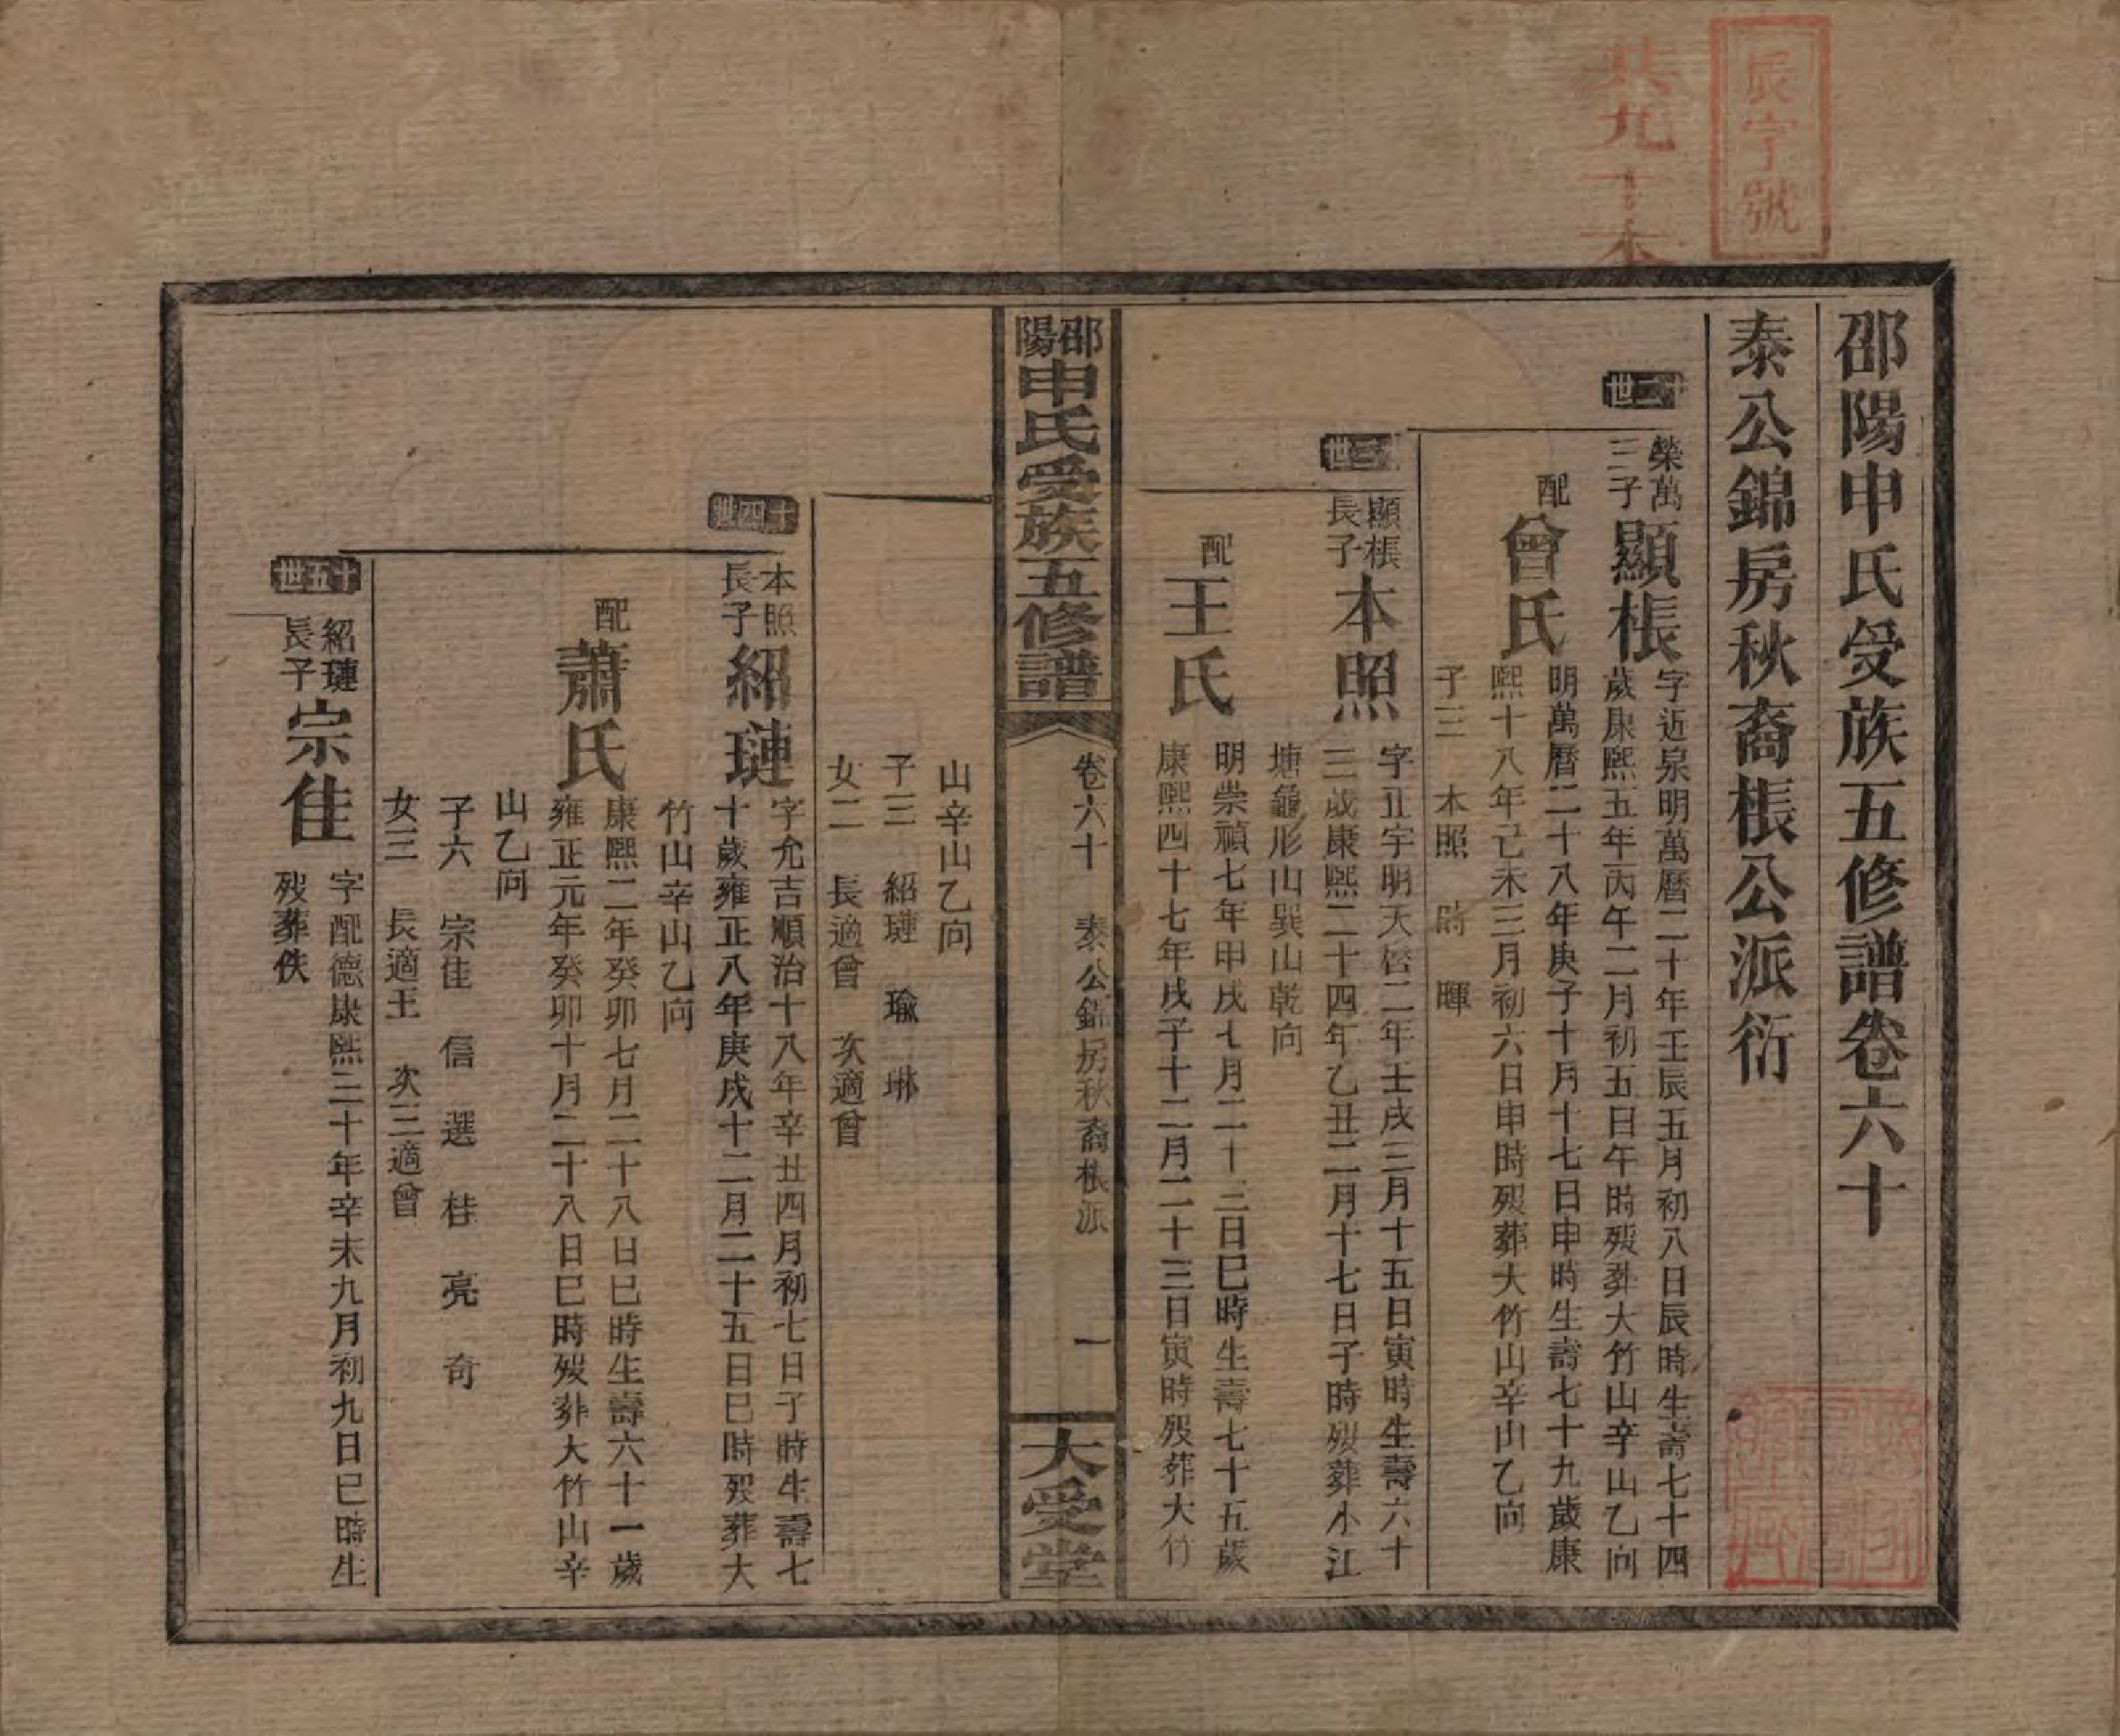 辰字號
共九十本
邵陽申氏受族五修譜卷六十
泰公錦房秋裔棖公派衍
十二世
榮萬三子
顯棖
字近泉明萬曆二十年壬辰五月初八日辰時生壽七十四
歲康熙五年丙午二月初五日午時歿葬大竹山辛山乙向
配曾氏
明萬曆二十八年庚子十月十七日申時生壽七十九歲康
熙十八年己未三月初六日申時歿葬大竹山辛山乙向
子三　本照　時　暉
十三世
顯棖長子
本照
字丑宇明天啓二年壬戌三月十五日寅時生壽六十
三歲康熙二十四年乙丑二月十七日子時歿葬小江
塘龜形山巽山乾向
配王氏
明崇禎七年甲戌七月二十三日巳時生壽七十五歲
康熙四十七年戊子十二月二十三日寅時歿葬大竹
邵陽申氏受族五修譜
卷六十　泰公錦房秋裔棖派　一
大受堂
山辛山乙向
子三　紹璉　瑜　琳
女二　長適曾　次適曾
十四世
本照長子
紹璉
字允吉順治十八年辛丑四月初七日子時生壽七
十歲雍正八年庚戌十二月二十五日巳時歿葬大
竹山辛山乙向
配蕭氏
康熙二年癸卯七月二十八日巳時生壽六十一歲
雍正元年癸卯十月二十八日巳時歿葬大竹山辛
山乙向
子六　宗佳　信　選　桂　亮　奇
女三　長適王　次三適曾
十五世
紹璉長子
宗佳
字配德康熙三十年辛未九月初九日巳時生
歿葬佚